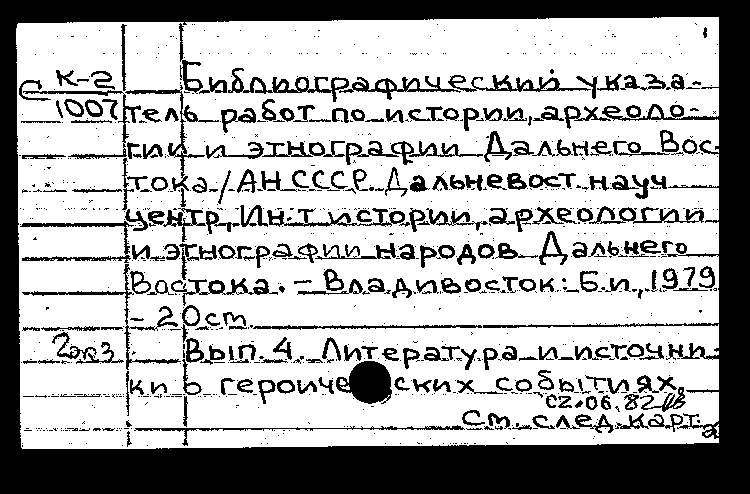 С К-2 Библиографический указа-
1007 тель работ по истории, археоло-
гии и этнографии Дальнего Вос-
тока / АН СССР. Дальневост. науч
центр, Ин-т истории, археологии
и этнографии народов Дальнего
Востока. – Владивосток: Б.и., 1979
– 20 см.
2экз Вып. 4. Литература и источни-
ки о героических событиях.
02.06.82
См. след. карт. 2